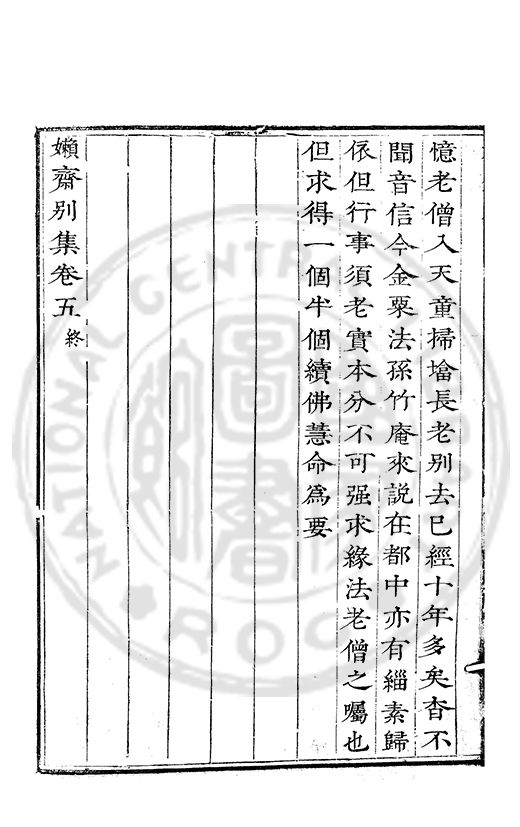 憶老僧入天童掃墖長老別去已經十年多矣杳不
聞音信今金粟法孫竹庵來說在都中亦有緇素歸
依但行事須老實本分不可强求緣法老僧之囑也
但求得一個半個續佛慧命爲要
嬾齋別集卷五終
NATIONAL CENTRAL
ROC